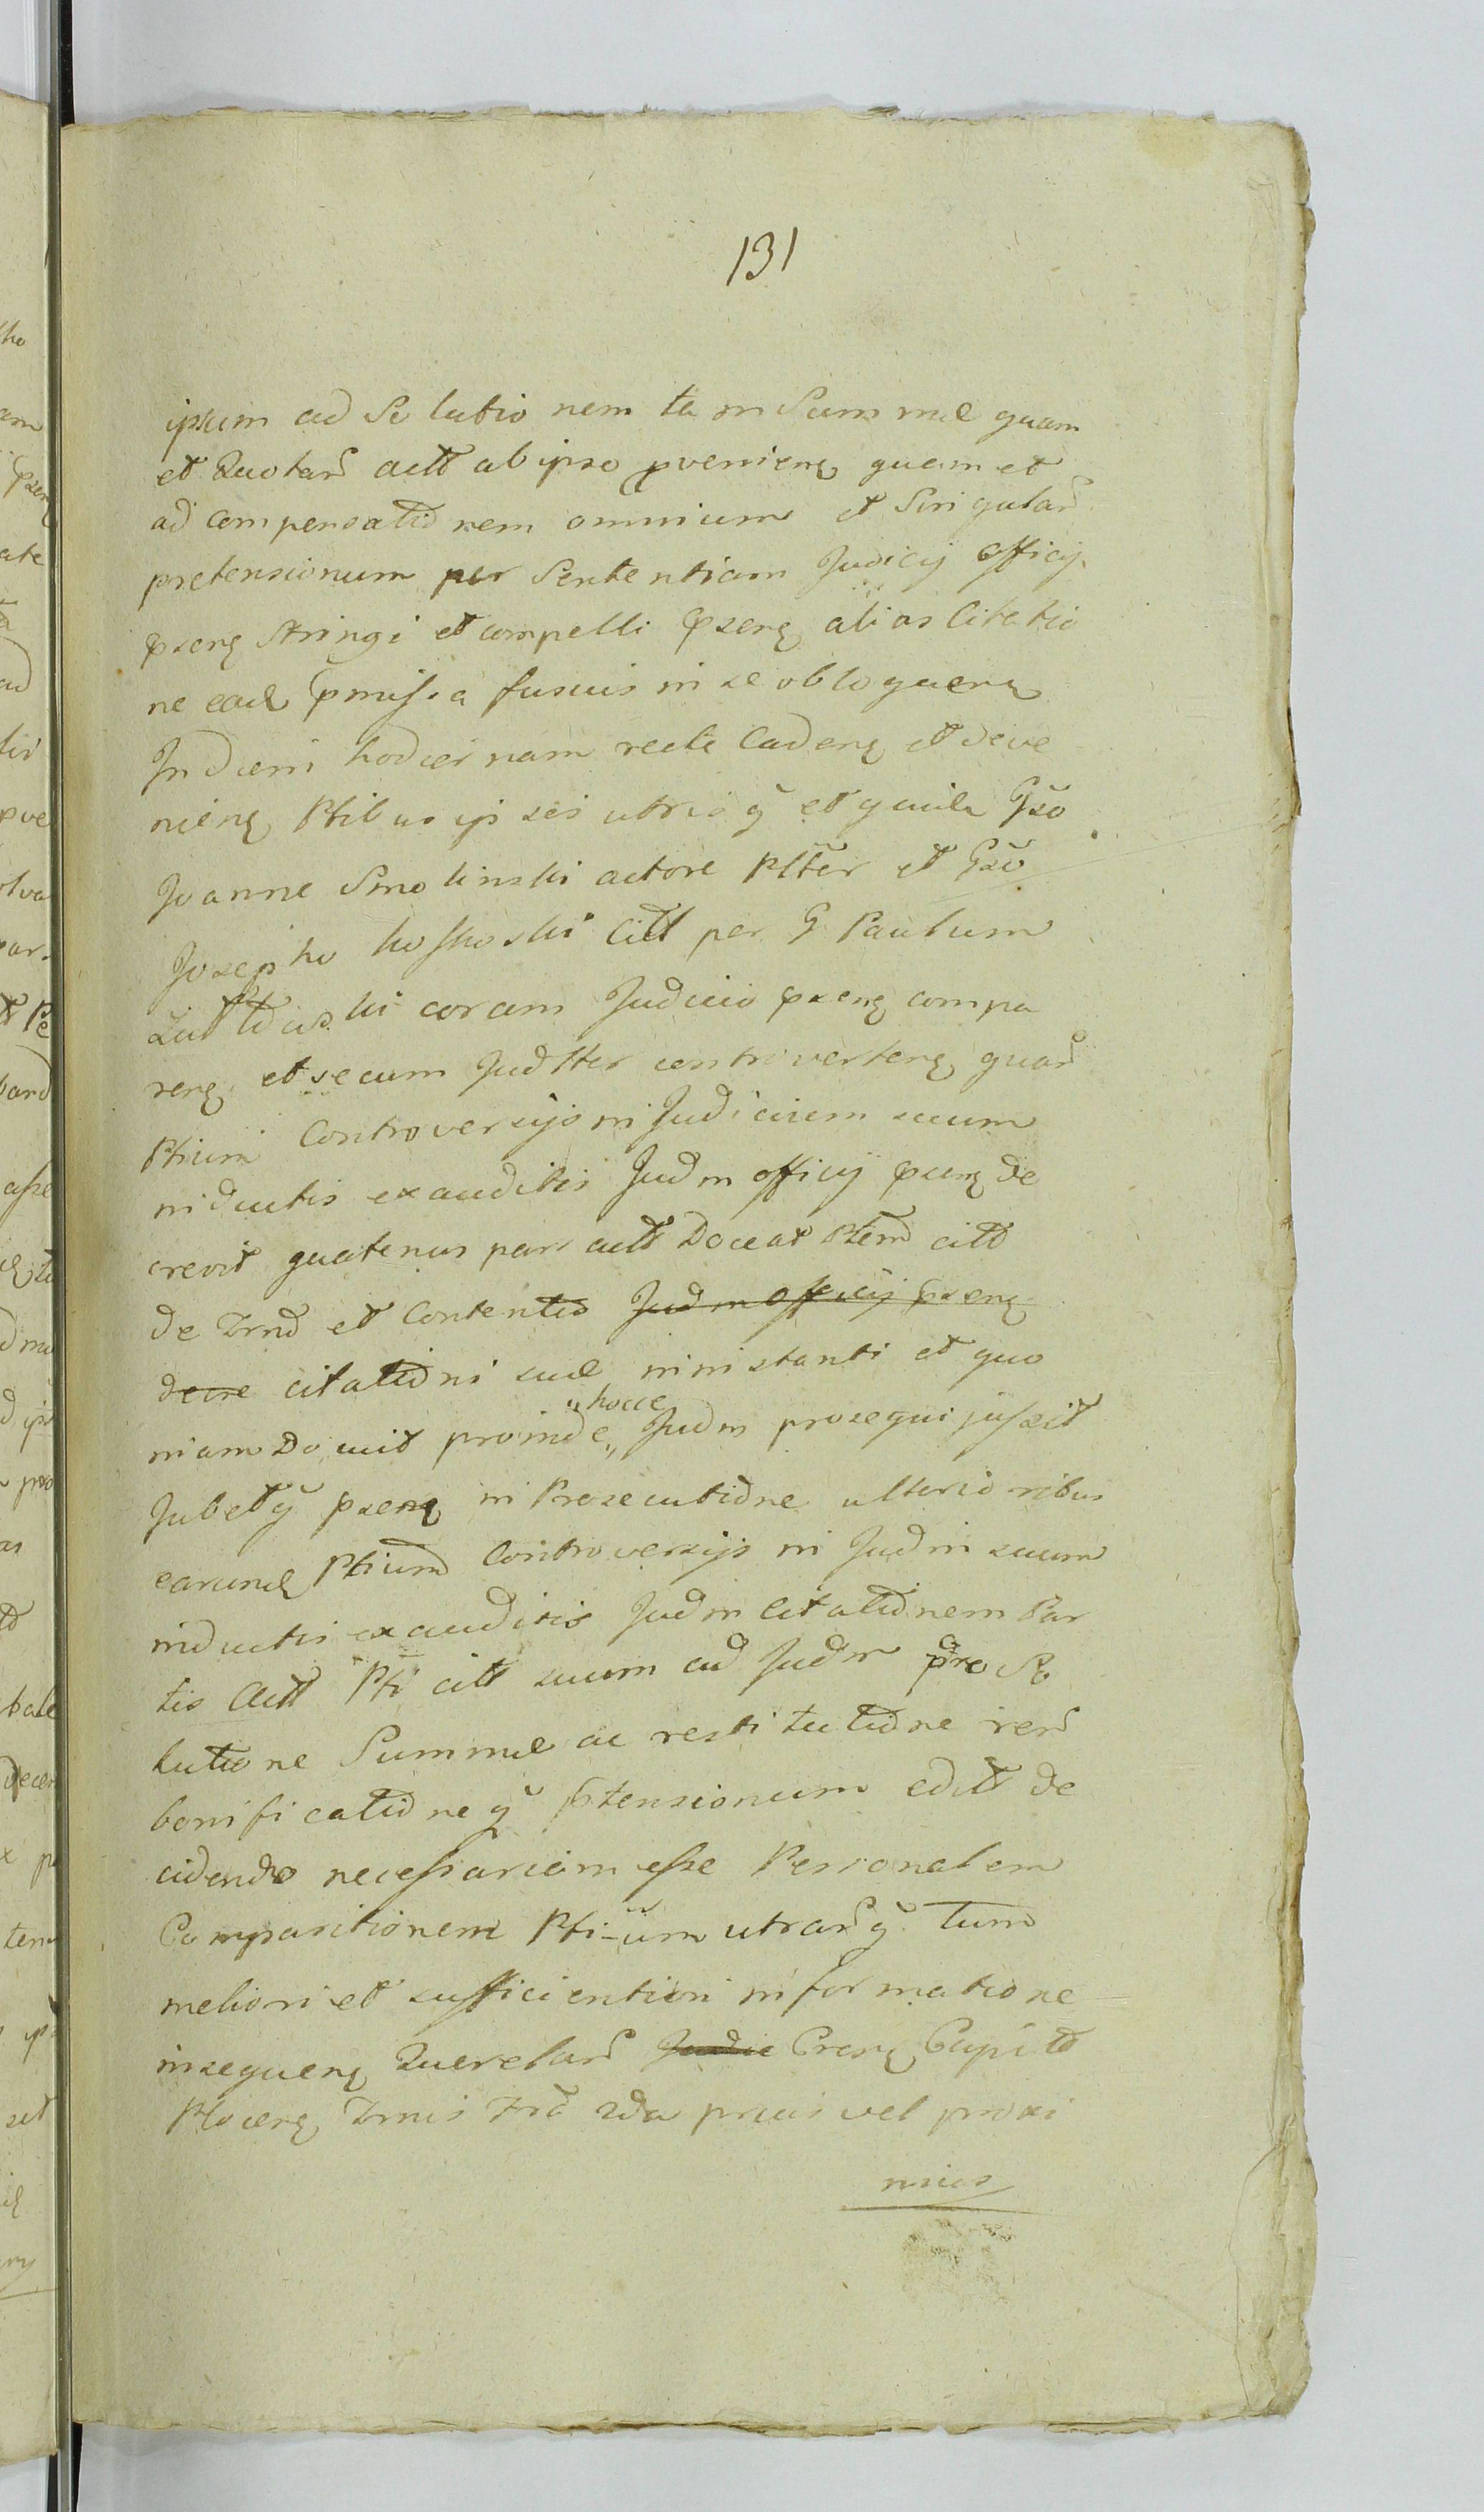 131
ipsum ad Solutionem tam Summæ quam
et Quotarũ actt ab ipso pvenienę quam et
ad compensationem omnium et Singularũ
pretensionum per Sententiam Judicij officij
pzenę stringi et compelli pzenę alias Citatio
ne eadę pmissa fusius in se obloquenę
In diem hodiernam recte Cadenę et deve
nienę Ptibus ipsis utrisq̃ et quidę Gzo
Joanne Smolinski actore Plter et Gzo
Josepho Citt per G Paulum
coram Judicio pzenę compa
renę et secum Judltter controvertenę quarũ
Ptium Controversijs in Judicium suum
inductis exauditis Judm officij pzenę de
crevit quatenus pars actt Doceat Ptem citt
de Trno et Contentis Judm officij pzenę
decre citationi suæ inistanti et quo
niam Docuit proinde „hocce„ Judm prosequi jussit
Jubetq̃ pzenę in Prosecutione ulterioribus
earundę Ptium Controversijs in Judm suum
inductis exauditis Judm Citationem Par
tis Actt Pti citt suum ad Judm pro So
lutione Summæ ac restitutione rerũ
bonificationeq̃ ptensionum editt de
cidendo necessariam esse Personalem
Comparitionem Ptium utrarũq̃ Tum
meliori et sufficientiori informatione
insequenę Querelarũ Judic Cresę Capitt
Plocenę Trnis Frõ 2da prius vel proxi
mius